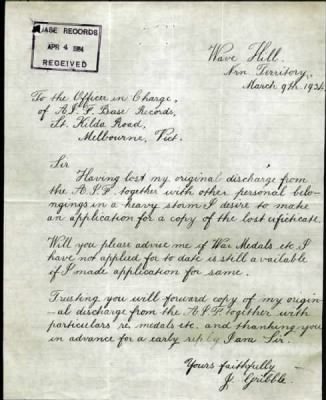 BASE RECORDS
APR 4 1934
RECEIVED
Wave Hill.
Nrn Territory,
March 9th. 1934.
To the Officer in Charge,
of A.I.F. Base Records,
St. Kilda Road,
Melbourne, Vict.
Sir
Having lost my original discharge from
the A.I.F. together with other personal belo-
ngings in a heavy storm I desire to make
an application for a copy of the lost certificate.
Will you please advise me if War Medals etc I
have not applied for to date is still available
if I made application for same.
Trusting you will forward copy of my origin-
-al discharge from the A.I.F. together with
particulars re, medals etc. and thanking you
in advance for a early reply I am Sir.
Yours faithfully
J. Gribble